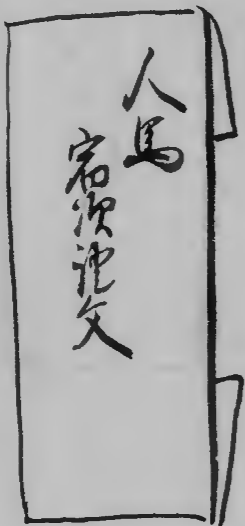 人馬
宿次証文